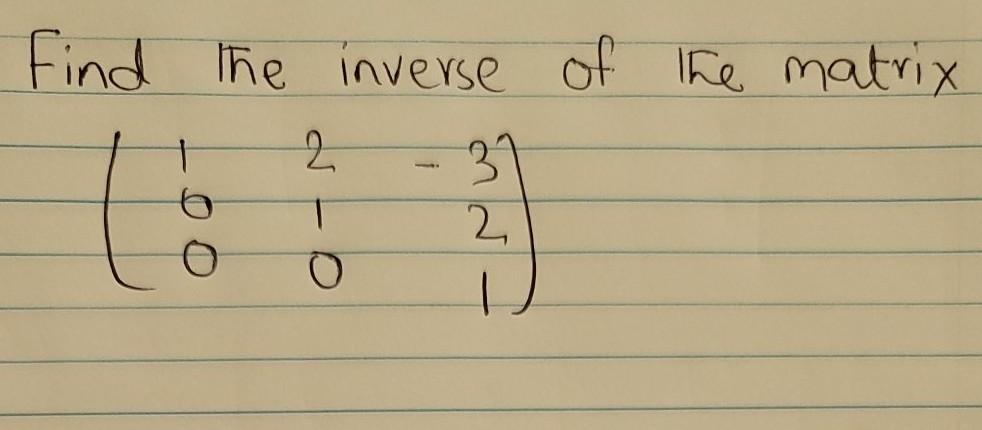 Find the inverse of the matrix
1 2 -3
0 1 2
0 0 1